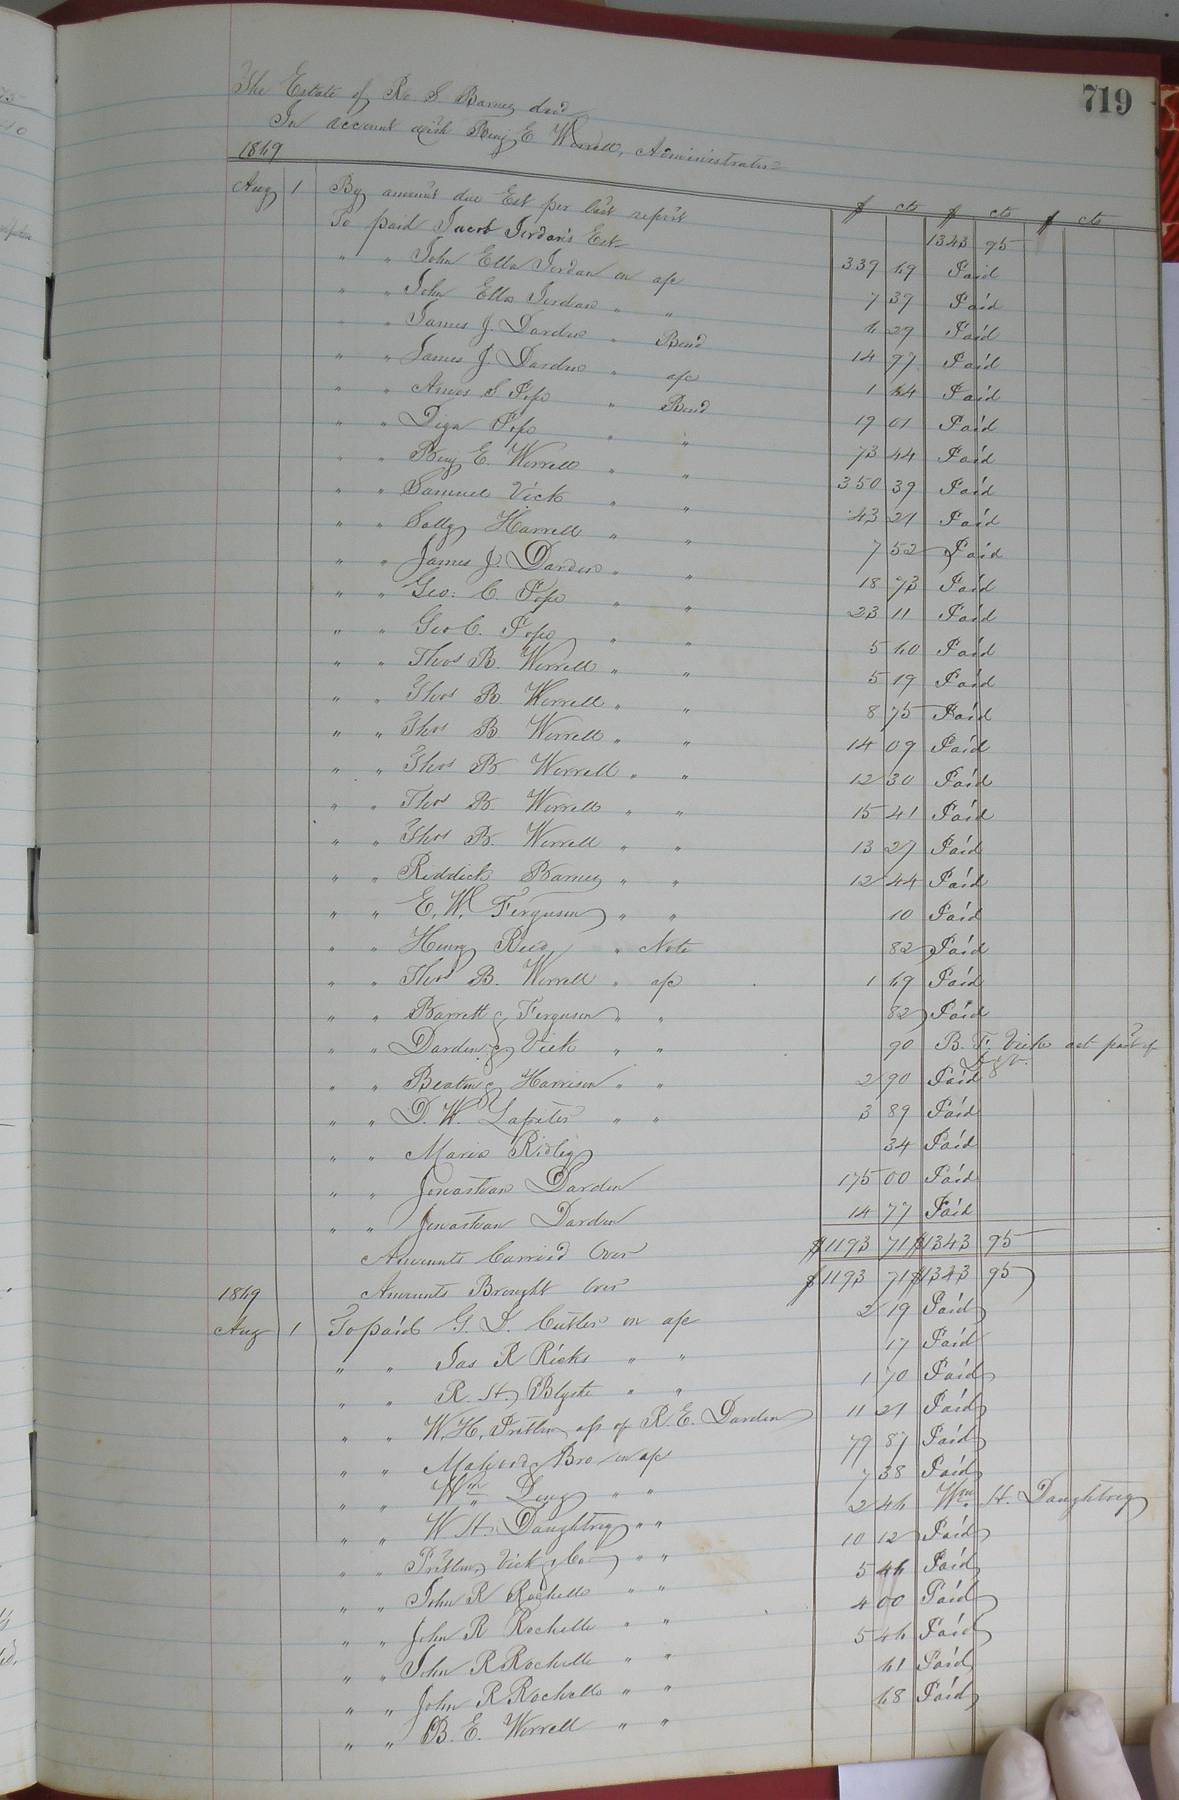 719
The Estate of Ro S. Barney decd
In account with Benj E. Worrell, Administrator
1869
$ cts $ cts $ cts
Aug 1 By amount due Est per last report 1343 95
To paid Jacob Jordan's Est 339 69 Paid
" " John Ella Jordan on a/c 7 37 Paid
" " John Ellas Jordan " " 6 29 Paid
" " James J. Darden " Bond 14 97 Paid
" " James J Darden " a/c 1 64 Paid
" " Amos S Pope " Bond 19 01 Paid
" " Diza Pope " " 73 44 Paid
" " Benj E. Worrell " " 350 39 Paid
" " Samuel Vick " " 43 21 Paid
" " Sally Harrell " " 7 52 Paid
" " James J. Darden " " 18 73 Paid
" " Geo: C. Pope " " 23 11 Paid
" " Geo C. Pope " " 5 60 Paid
" " Thos B. Worrell " " 5 19 Paid
" " Thos B. Worrell " " 8 75 Paid
" " Thos B Worrell " " 14 09 Paid
" " Thos B Worrell " " 12 30 Paid
" " Thos B. Worrell " " 15 41 Paid
" " Thos B. Worrell " " 13 27 Paid
" " Riddick Barney " " 12 44 Paid
" " E. W. Ferguson " " 10 Paid
" " Henry " Note 82 Paid
" " Thos B. Worrell " a/c 1 69 Paid
" " Barrett & Ferguson " " 82 Paid
" " Darden & Vick " " 90 B. F. Vick act part of
D & V.
" " Beaton & Harrison " " 2 90 Paid
" " D. W. " " 3 89 Paid
" " Maria Ridley 34 Paid
" " Jonathan Darden 175 00 Paid
" " Jonathan Darden 14 77 Paid
Amounts Carried Over $1193 71 $1343 95
1869 Amounts Brought Over $1193 71 $1343 95
Aug 1 To paid G. D. Cutler on a/c 2 19 Paid
" " Jas R Ricks " " 17 Paid
" " R. H. " " 1 70 Paid
" " W. H. of R. E. Darden 11 21 Paid
" " & Bro on a/c 79 87 Paid
" " Wm " " 7 38 Paid
" " W H. Daughtrey " " 2 46 Wm. H. Daughtrey
" " Vick & Co " " 10 12 Paid
" " John R Rochelle " " 5 46 Paid
" " John R Rochelle " " 4 00 Paid
" " John R Rochelle " " 5 46 Paid
" " John R Rochelle " " 61 Paid
" " B. E. Worrell " " 68 Paid